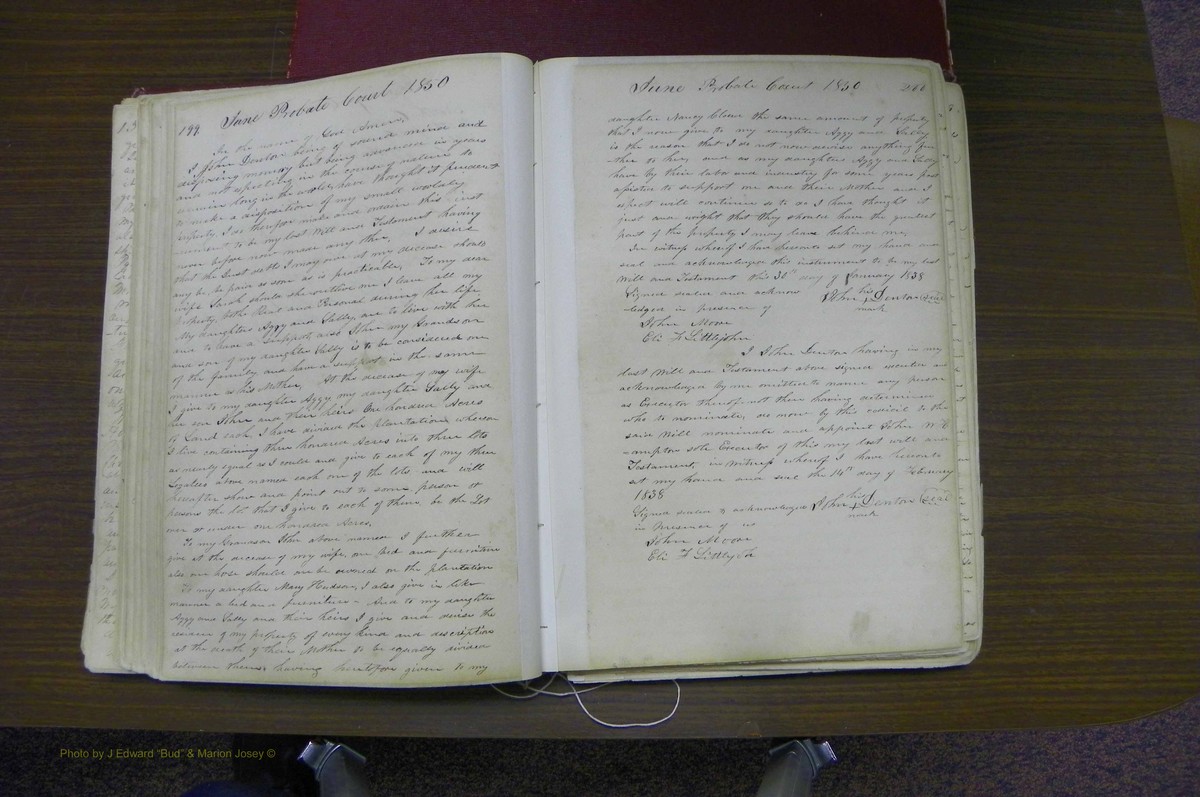 199 June Probate Court 1850
In the name of God Amen,
I John Denton being of sound mind and
disposing memory but being advanced in years
and not expecting in the course of nature to
remain long in the world, have thought it prudent
to make a disposition of my small worldly
property, I do therefore make and ordain this inst
rument to be my last Will and Testament having
never before now made any other, I desire
that the Just debts I may owe at my decease should
any be be paid as soon as is practicable, To my dear
wife Sarah should she outlive me I leave all my
property, both Real and Personal during her life
My daughters Aggy and Sally are to live with her
and to have a support, also John my Grandson
and son of my daughter Sally is to be considered one
of the family and have a support in the same
manner as his Mother, At the decease of my wife
I give to my daughter Aggy my daughter Sally and
her son John and their heirs One hundred Acres
of Land each, I have divided the plantation whereon
I live containing three hundred Acres into three lots
as nearly equal as I could and give to each of my three
Legatees above named each one of the lots and will
hereafter show and point out to some person or
persons the lot that I give to each of them, be the Lot
over or under one hundred Acres,
To my Grandson John above named I further
give at the decease of my wife, one bed and furniture
also one horse should one be owned on the plantation
To my daughter Mary Hudson, I also give in like
manner a bed and furniture - And to my daughter
Aggy and Sally and their heirs I give and devise the
residue of my property of every kind and description
at the death of their Mother to be equally divided
between them, having heretofore given to my
June Probate Court 1850 200
daughter Nancy the same amount of property
that I now give to my daughter Aggy and Sally
is the reason that I do not now devise anything fur
ther to her, and as my daughters Aggy and Sally
have by their labor and industry for some years past
assisted to support me and their Mother and I
expect will continue so to do I have thought it
just and right that they should have the greatest
part of the property I may leave behind me,
In witness whereof I have hereunto set my hand and
seal and acknowledged this instrument to be my last
Will and Testament this 30th day of January 1838
Signed sealed and acknow John his Denton Seal
ledged in presence of mark
John Moore
Eli F Littlejohn
I John Denton having in my
last Will and Testament above signed sealed and
acknowledged by me omitted to name any person
as Executor thereof not then having determined
who to nominate, do now by this codicil to the
said Will nominate and appoint John W B
sole Executor of this my last will and
Testament, in witness whereof I have hereunto
set my hand and seal the 14th day of February
1838
Signed sealed & acknowledged John his Denton Seal
in Presence of us mark
John Moore
Eli F Littlejohn
Photo by J Edward "Bud" & Marion Josey ©